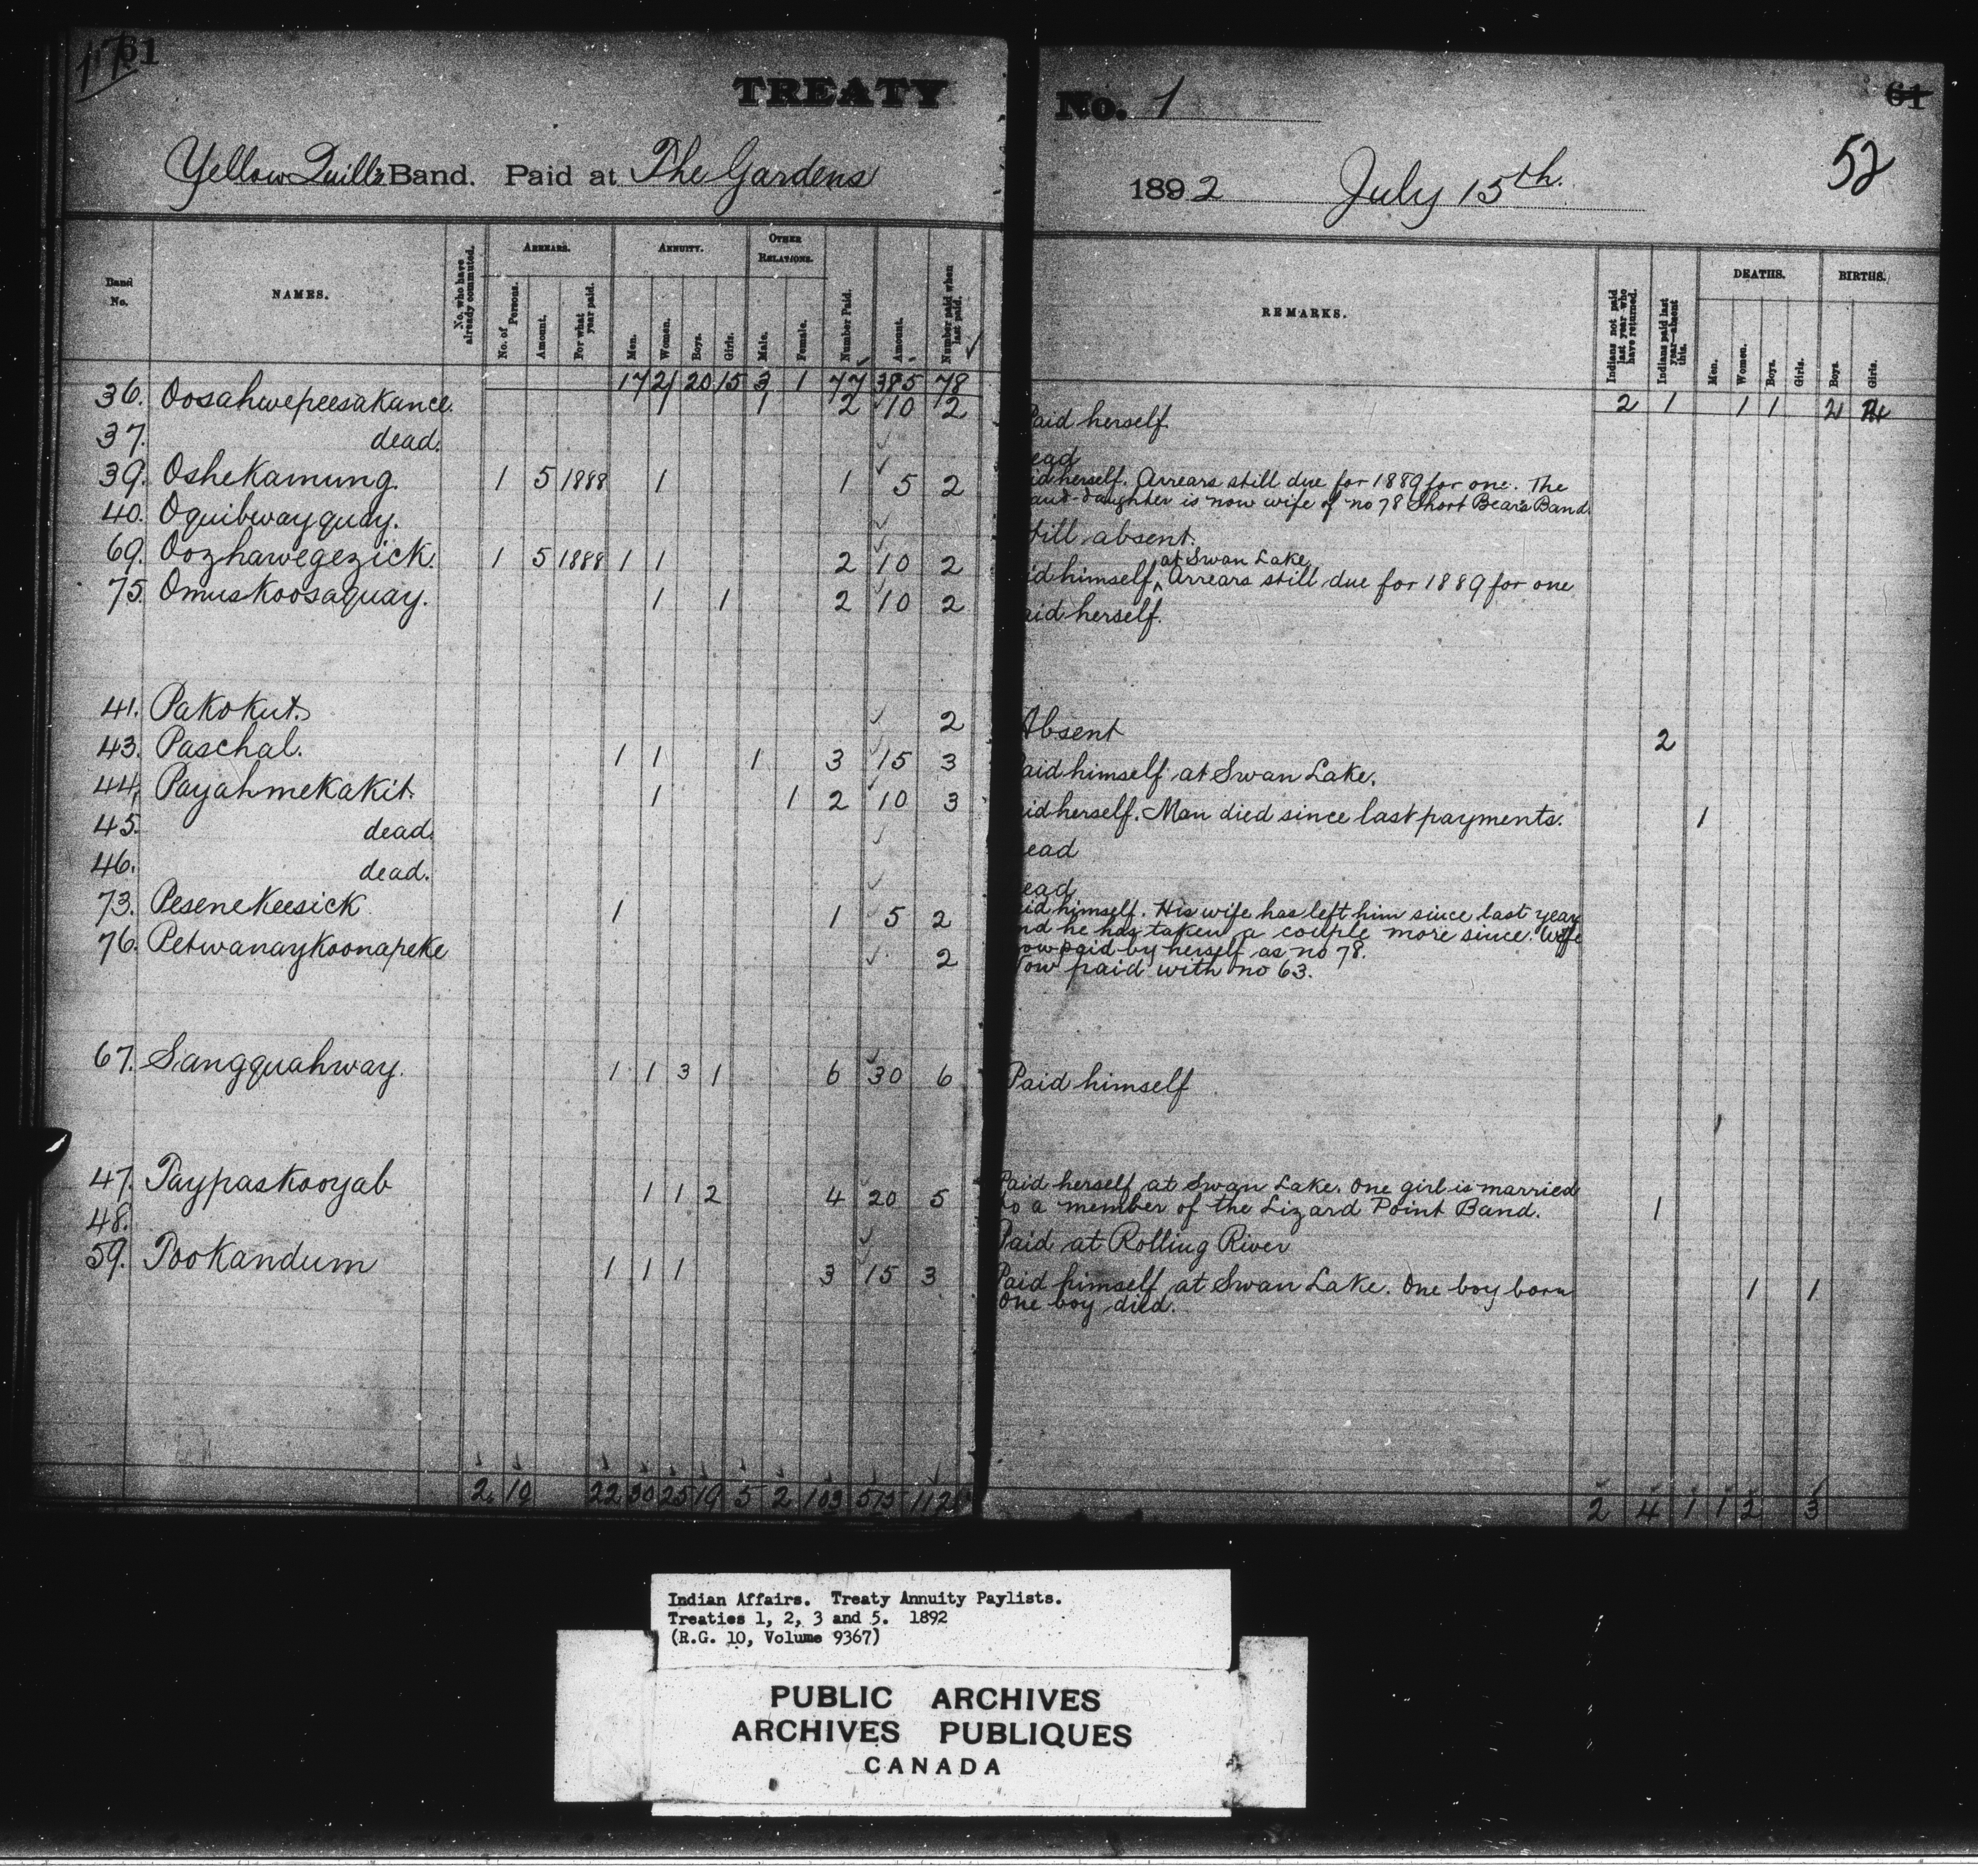 61
TREATY No. 1
61
52
Yellow Quill's Band. Paid at The Gardens 1892 July 15th.
Band No.
NAMES.
No. who have already commuted.
ARREARS.
No. of Persons.
Amount.
For what year paid.
ANNUITY.
Men.
Women.
Boys.
Girls.
OTHER RELATIONS.
Male.
Female.
Number Paid.
Amount.
Number paid when last paid.
REMARKS.
Indians not paid last year who have returned.
Indians paid last year—absent this.
DEATHS.
Men.
Women.
Boys.
Girls.
BIRTHS.
Boys.
Girls.
17 21 20 15 3 1 77 385 78 2 1 1 1 2
36. Oosahwepeesakance. 1 1 2 10 2 Paid herself.
37. dead. ead
39. Oshekamung. 1 5 1888 1 1 5 2 id herself. Arrears still due for 1889 for one. The
and-daughter is now wife of no 78 Short Bear's Band.
40. Oquibwayquay. till absent.
69. Oozhawegezick. 1 5 1888 1 1 2 10 2 id himself, at Swan Lake, Arrears still due for 1889 for one
75. Omuskoosaquay. 1 1 2 10 2 aid herself.
41. Pakokut. 2 Absent 2
43. Paschal. 1 1 1 3 15 3 aid himself at Swan Lake.
44. Payahmekakit. 1 1 2 10 3 id herself. Man died since last payments. 1
45. dead. ead
46. dead. ead
73. Pesenekeesick 1 1 5 2 id himself. His wife has left him since last year
nd he has taken a couple more since. Wife
ow paid by herself as no 78.
76. Petwanaykoonapeke 2 ow paid with no 63.
67. Sangquahway. 1 1 3 1 6 30 6 Paid himself
47. Taypaskooyab 1 1 2 4 20 5 Paid herself at Swan Lake. One girl is married
to a member of the Lizard Point Band. 1
48. Paid at Rolling River
59. Tookandum 1 1 1 3 15 3 Paid himself at Swan Lake. One boy born
One boy died. 1 1
2 10 22 30 25 19 5 2 103 515 112 2 4 1 1 2 3
Indian Affairs. Treaty Annuity Paylists.
Treaties 1, 2, 3 and 5. 1892
(R.G. 10, Volume 9367)
PUBLIC ARCHIVES
ARCHIVES PUBLIQUES
CANADA